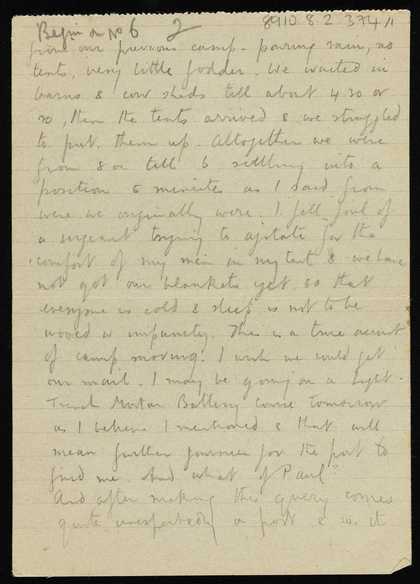 Begin on No 6 2 8910.8.2.374/1
from our previous camp - pouring rain, no
tents, very little fodder. We waited in
barns & cow sheds till about 4.30 or
so, then the tents arrived & we struggled
to put them up. Altogether we were
from 8 a till 6 settling into a
position 5 minutes as I said from
were we originally were. I fell foul of
a sergeant trying to agitate for the
comfort of my men in my tent & we have
not got our blankets yet. so that
everyone is cold & sleep is not to be
wooed w impunity. This is a true account
of camp moving. I wish we could get
our mail. I may be going on a Light
Trench Mortar Battery course tomorrow
as I believe I mentioned & that will
mean further journeys for the post to
find me. And what of Paul"
And after making this query comes
quite unexpectedly a post & in it